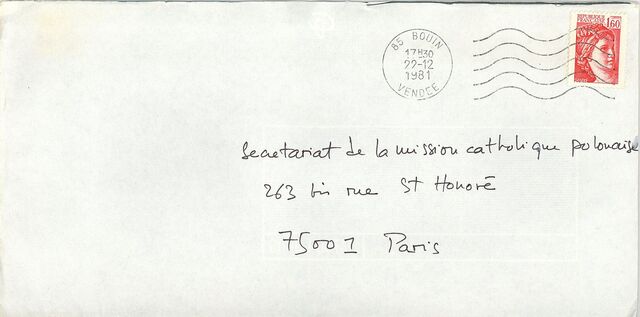 85 BOUIN
17H30
22-12
1981
VENDEE
1,60
Secretariat de la mission catholique polonaise
263 bis rue St Honoré
75001 Paris